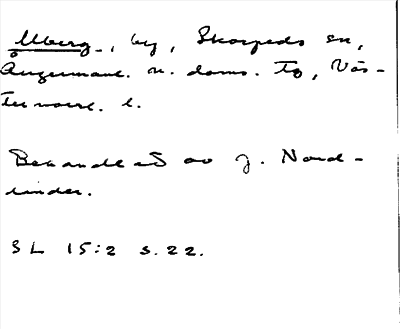 Ulberg, by, Skorpeds sn,
Ångermanl. n. doms. Tg, Väs-
ternorrl. l.
Behandlat av J. Nord-
linder.
SL 15:2 s. 22.